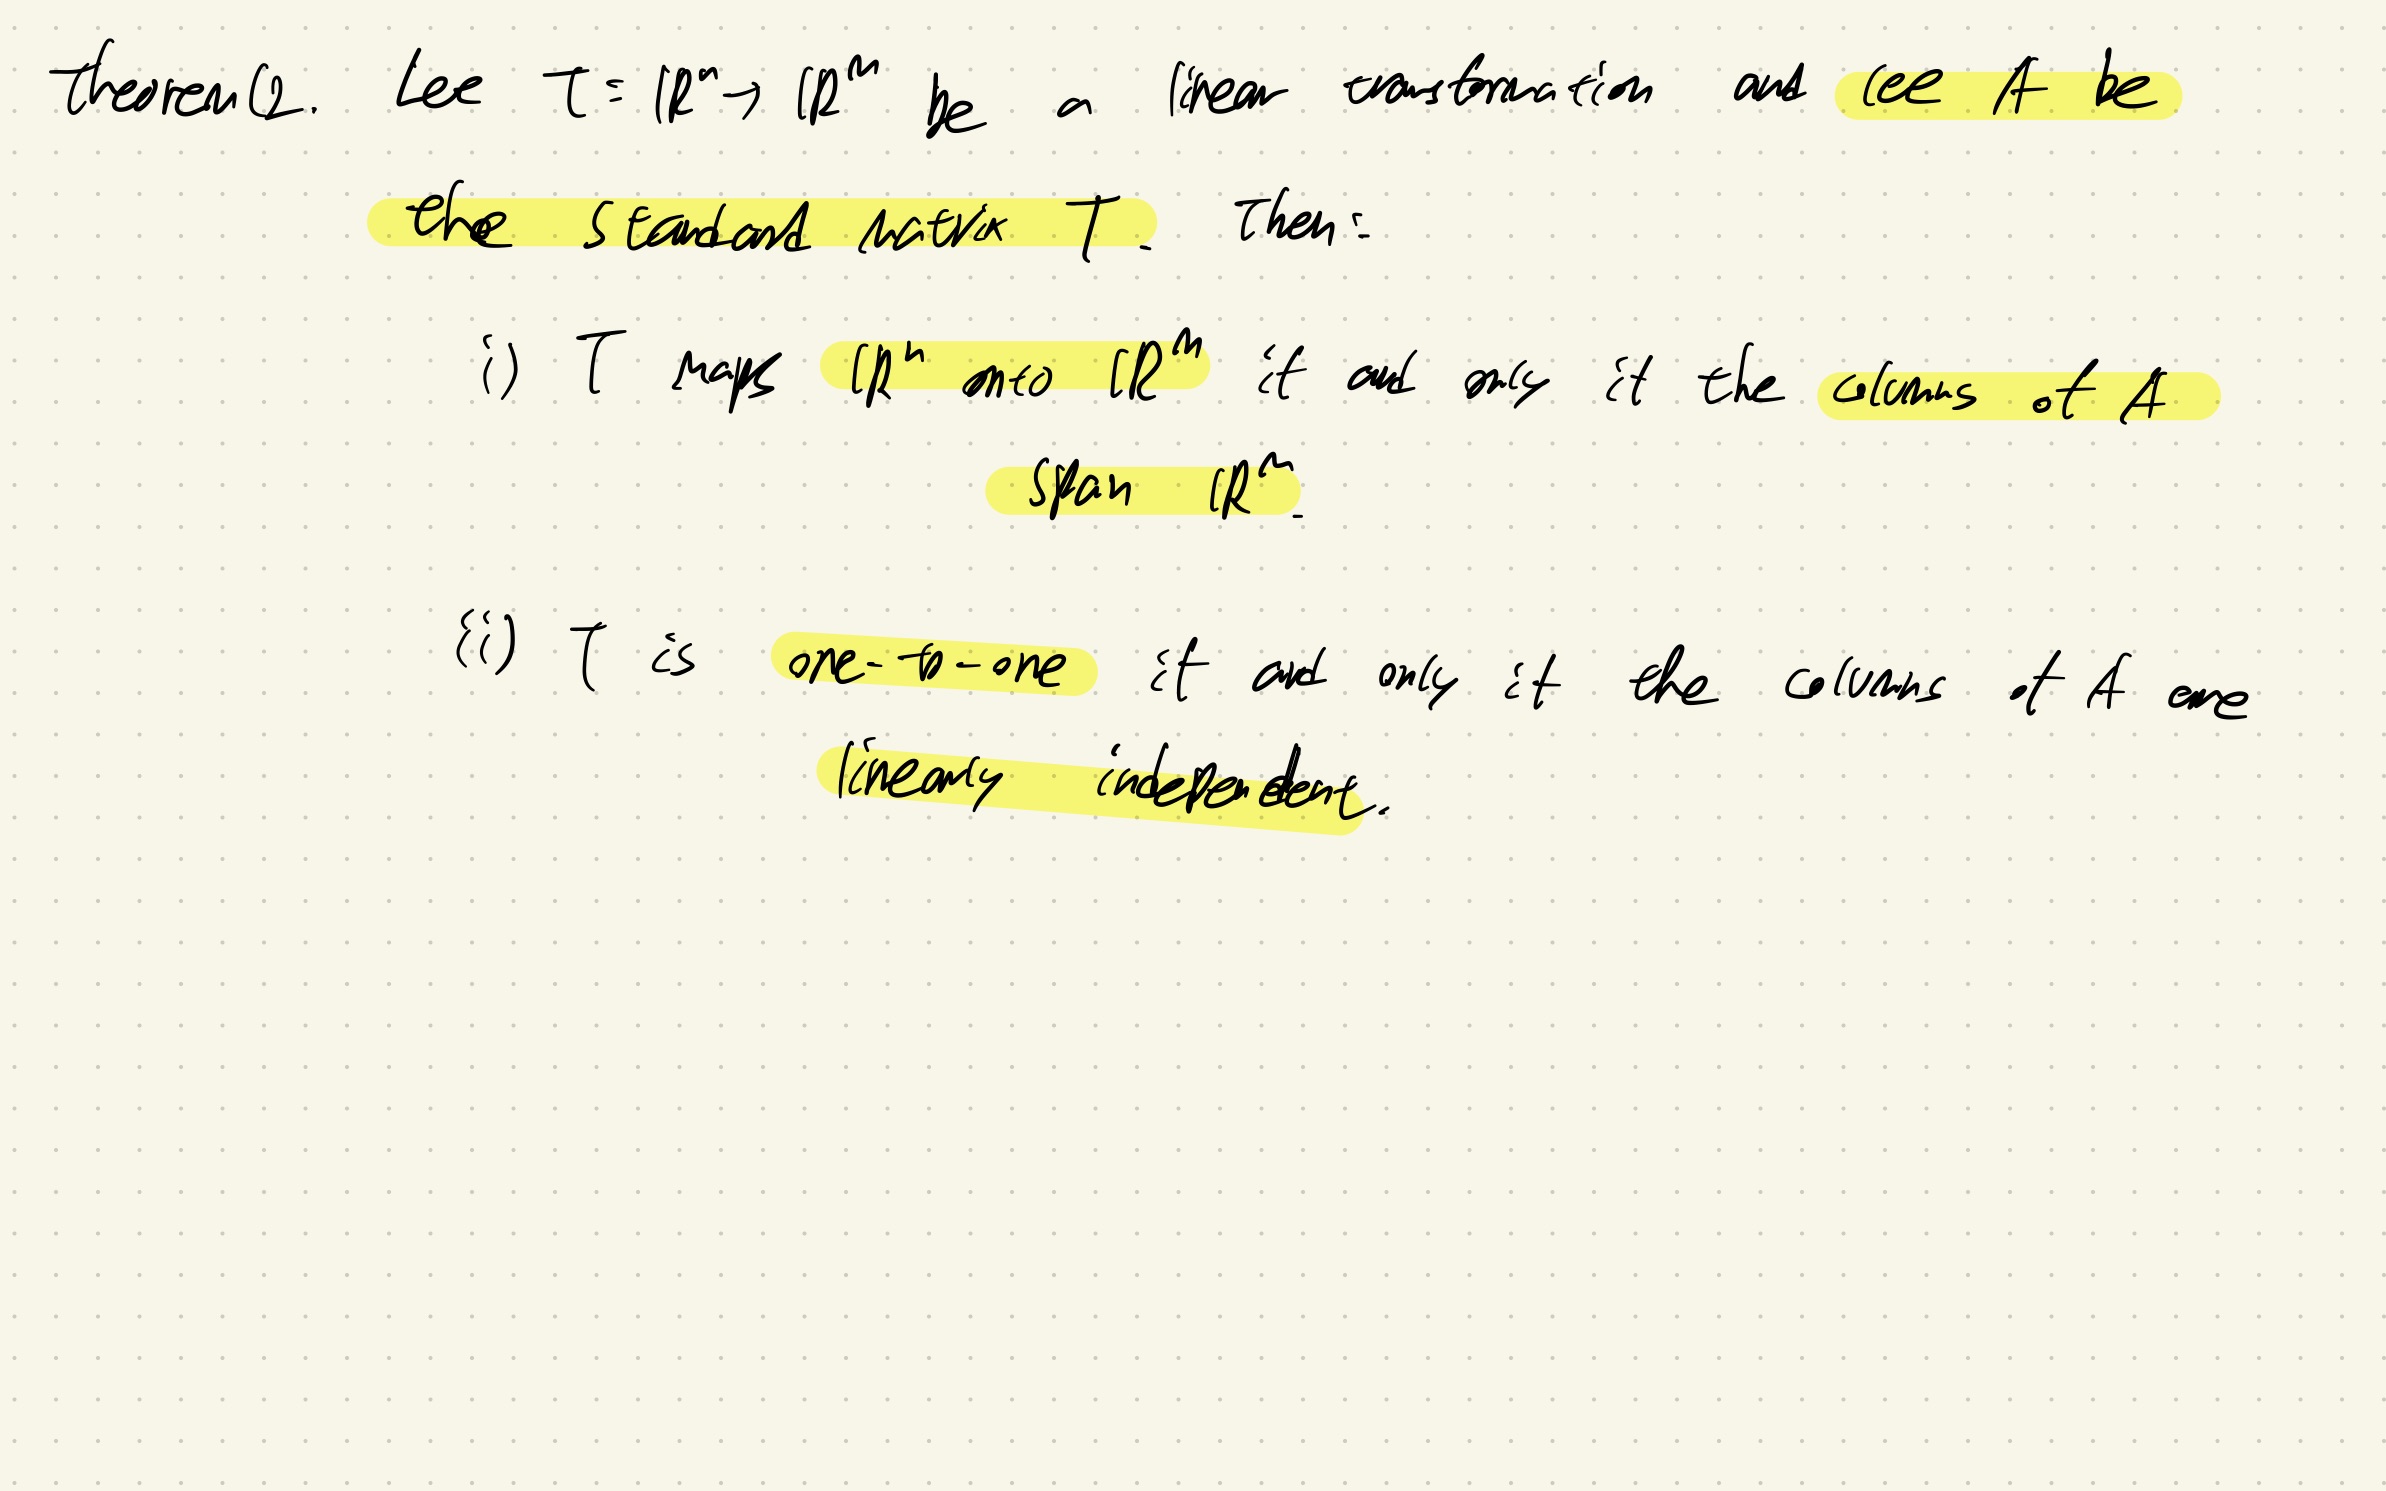 Theorem 12. Let T: ℝⁿ → ℝᵐ be a linear transformation and let A be
the standard matrix T. Then:
i) T maps ℝⁿ onto ℝᵐ if and only if the columns of A
span ℝᵐ.
ii) T is one-to-one if and only if the columns of A are
linearly independent.